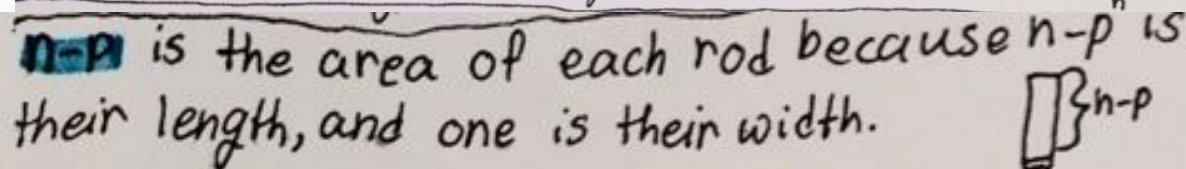 n-p is the area of each rod because n-p is
their length, and one is their width.
n-p